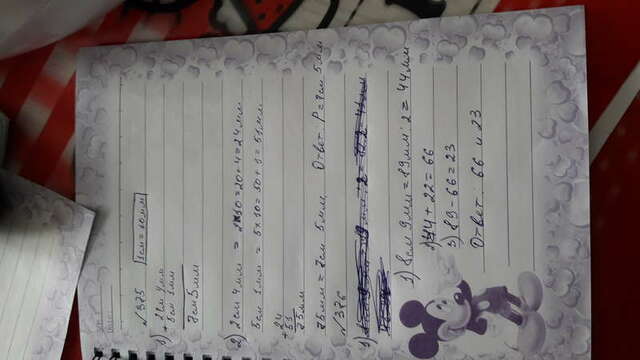 №375 1см = 10мм
1) + 2см 4мм
5см 1мм
7см 5мм
2) 2см 4мм = 2×10 = 20+4 = 24мм
5см 1мм = 5×10 = 50+1 = 51мм
+24
51
75мм
75мм = 7см 5мм Ответ: P = 7см 5мм
№376
1) 8см 9мм = 89мм : 2 = 44мм
2) 44 + 22 = 66
3) 89 - 66 = 23
Ответ: 66 и 23